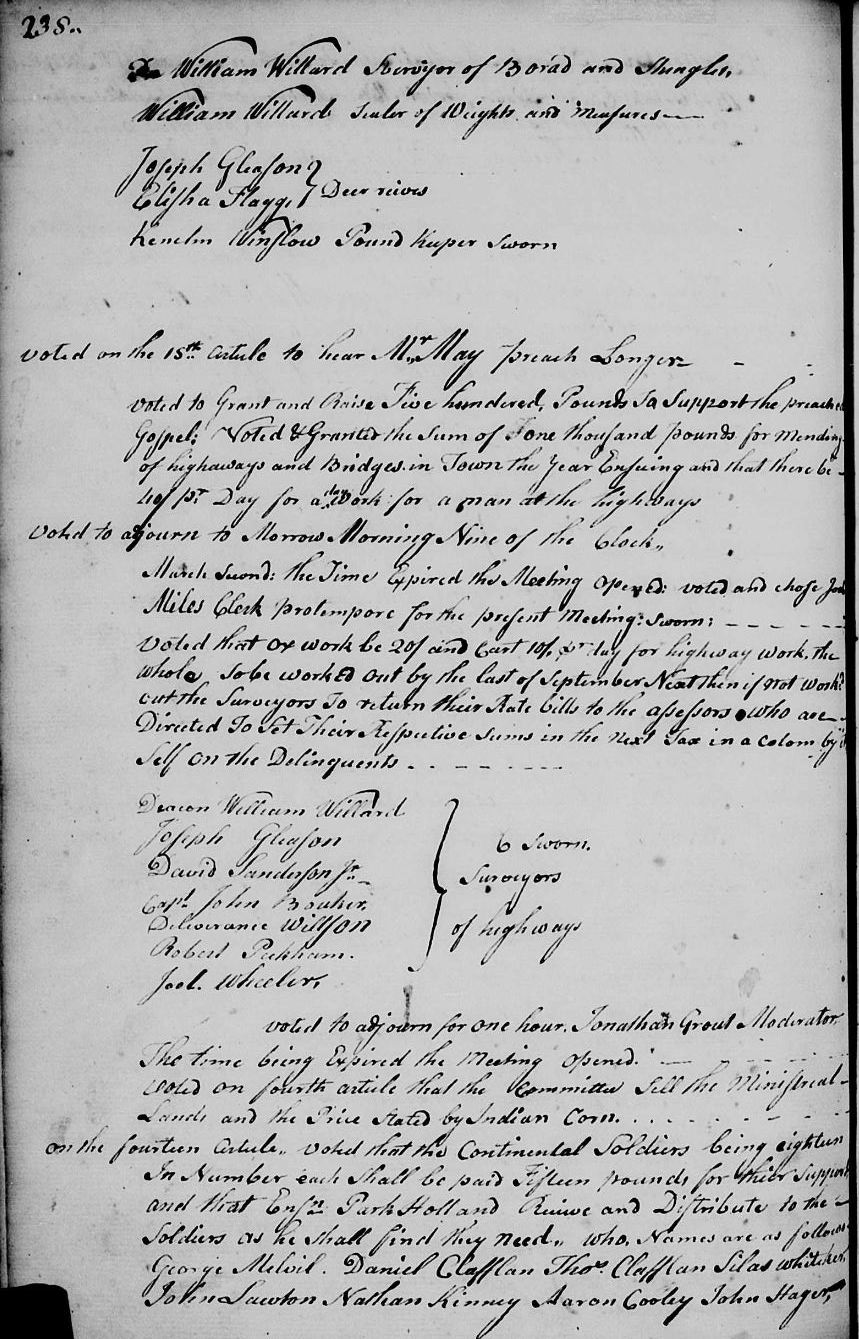 238..
William Willard Surveyor of Borad and Shingles,
William Willard Sealer of Weights and Measures
Joseph Gleason
Elisha Flagg, } Deer rieves
Kenelm Winslow Pound Keeper Sworn
Voted on the 15th. article to hear Mr. May preach Longer
voted to Grant and Raise Five hundered, Pounds To Support the preached
Gospel; Voted & Granted the Sum of one thousand pounds for Mending
of highaways and Bridges in Town the Year Ensuing and that there be
40/ pr Day for a days Work for a man at the highways
Voted to adjourn to Morrow Morning Nine of the Clock,,
March Second: the Time Expired the Meeting Opened: voted and chose Joel
Miles Clerk protempore for the present Meeting: Sworn;
Voted that ox work be 20/ and Cart 10/, pr day for highway work. the
whole, to be worked out by the last of September Next then if not work'd
out the Surveyors To return their Rate bills to the assessors who are
Directed To Set Their Respective Sums in the next Tax in a Colom by it
Self on the Delinquents
Deacon William Willard
Joseph Gleason
David Sanderson Jr.
Capt John Bowker,
Deliverance Willson
Robert Peckham.
Joel. Wheeler,
6 Sworn.
Surveyors
of highways
voted to adjourn for one hour. Jonathan Grout Moderator.
The time being Expired the Meeting opened.
Voted on fourth article that the Committee Sell the Ministreal
Lands and the Price Stated by Indian Corn.
on the fourteen article,, voted that the Continental Soldiers being eighteen
In Number each Shall be paid Fifteen pounds for thier Support
and that Ensn. Park Holland Reiuve and Distribute to the
Soldiers as he shall find they need,, who, Names are as follows
George Melvil. Daniel Clafflan Thos. Clafflan Silas whiteker,
John Lawton Nathan Kinney Aaron Cooley John Hager,